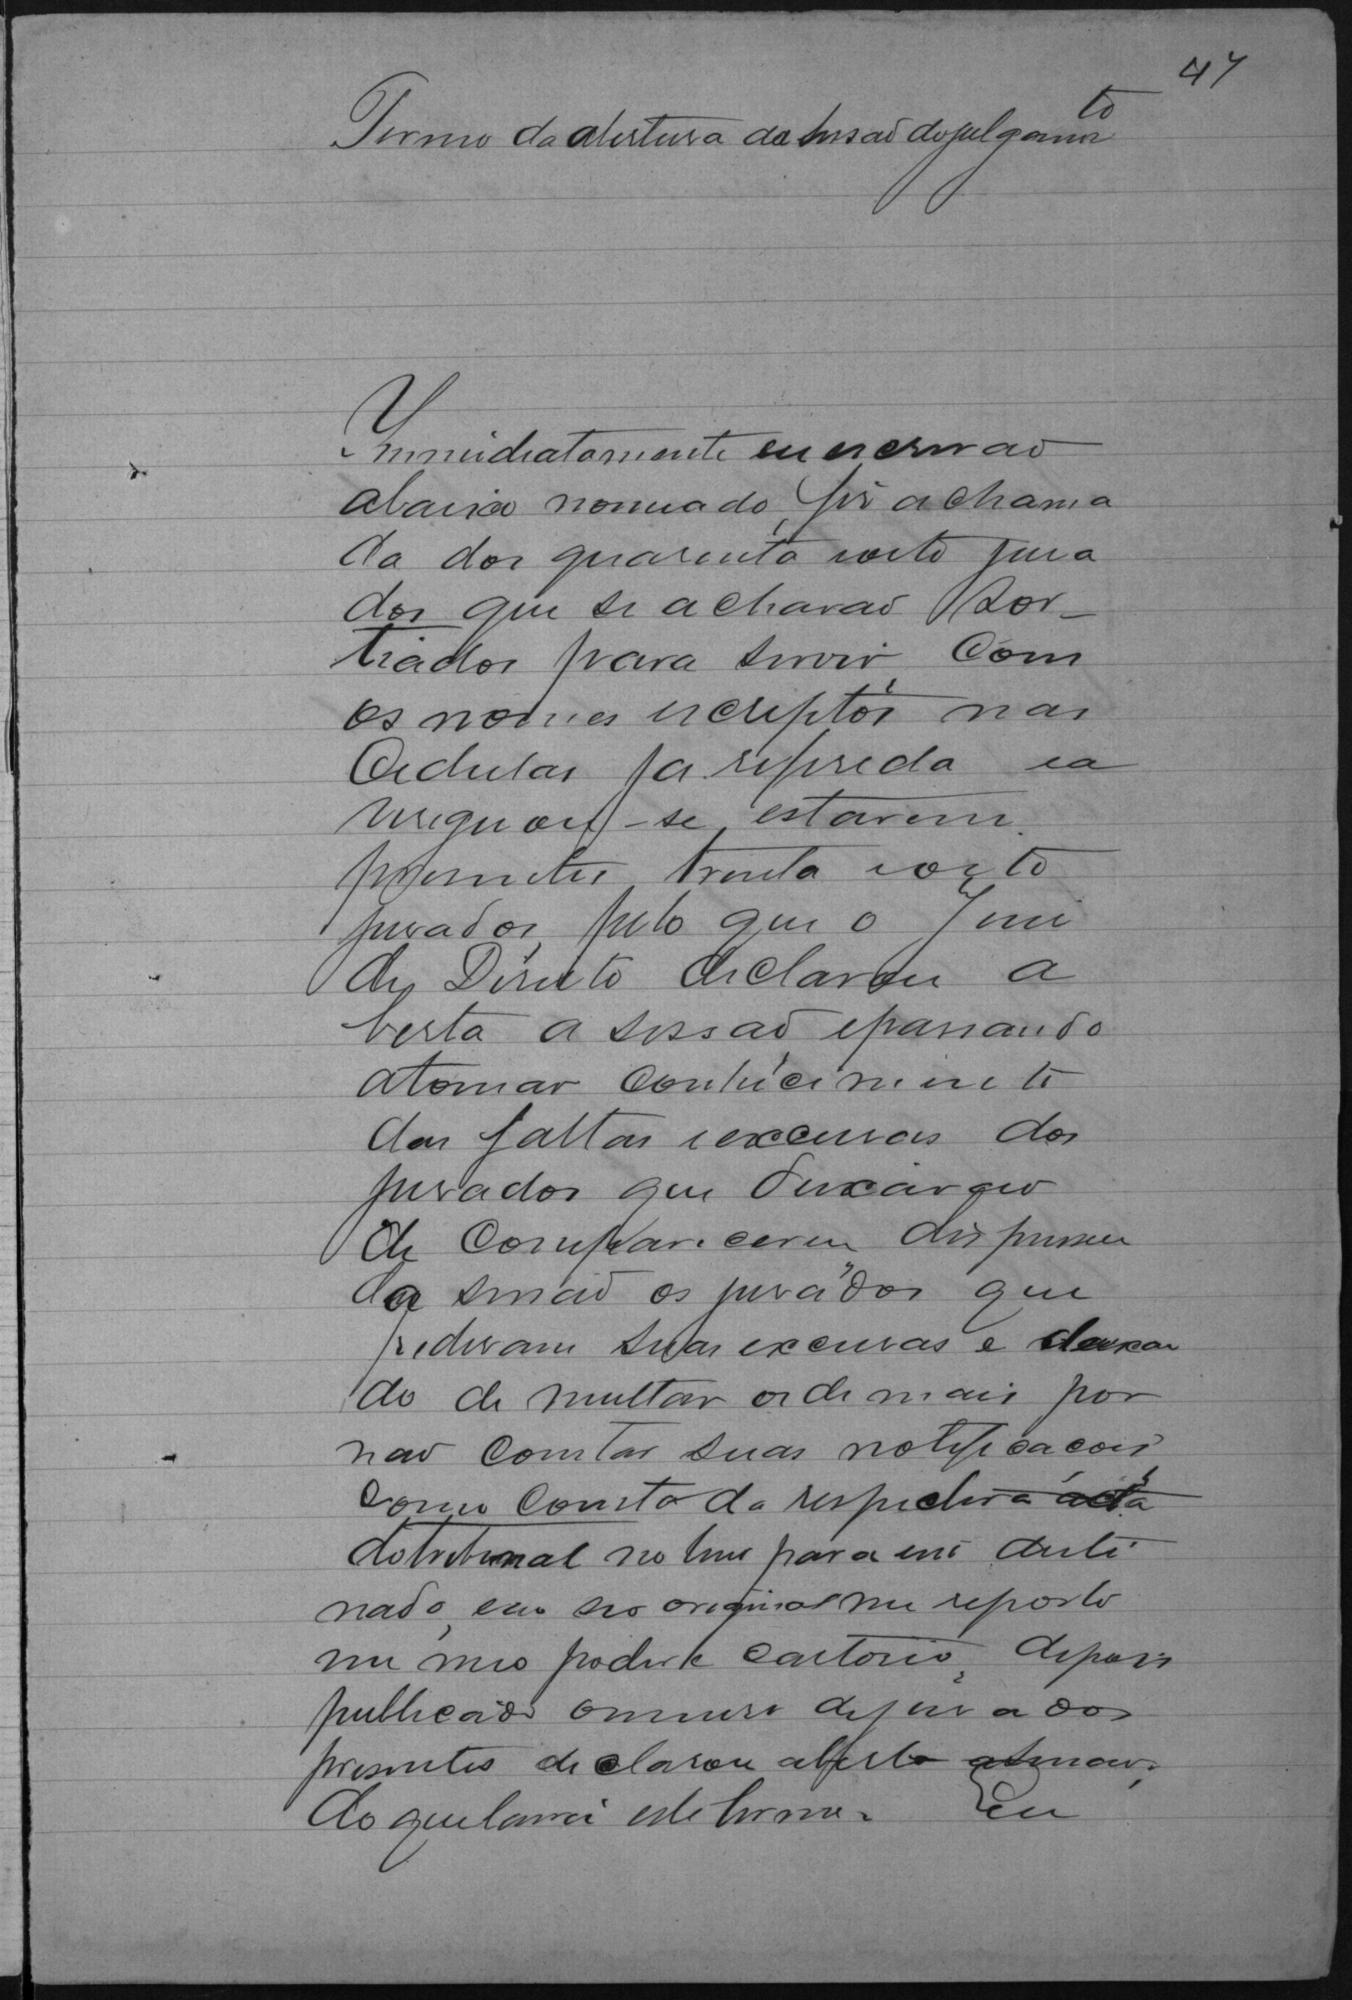 47
Termo da abertura da sessaõ do julgamto
Immidiatamente eu escrivaõ
abaixo nomeado, fiz a chama
da dos quarenta e oito jura
dos que se achavaõ sor-
tiados para servir, com
os nomes escriptos nas
Cedulas ja referida e a
veriguou-se estarem
presentes trinta e oito
jurados, pelo que o Juiz
de Direito declarou a
berta a sessaõ e passando
a tomar conhecimento
das faltas e excusas dos
jurados que deixaraõ
de comparecerem dispensou
da sessaõ os jurados que
pediram suas excusas e deixan
do de multar os de mais por
naõ constar suas notificacoes,
como consta da respectiva acta
do tribunal no livro para esse desti
nado, em seo original me reporto
em meo poder e cartorio, depois
publicado o numero de jurados
presentes declarou aberta a sessaõ,
do que lavrei este termo. Eu